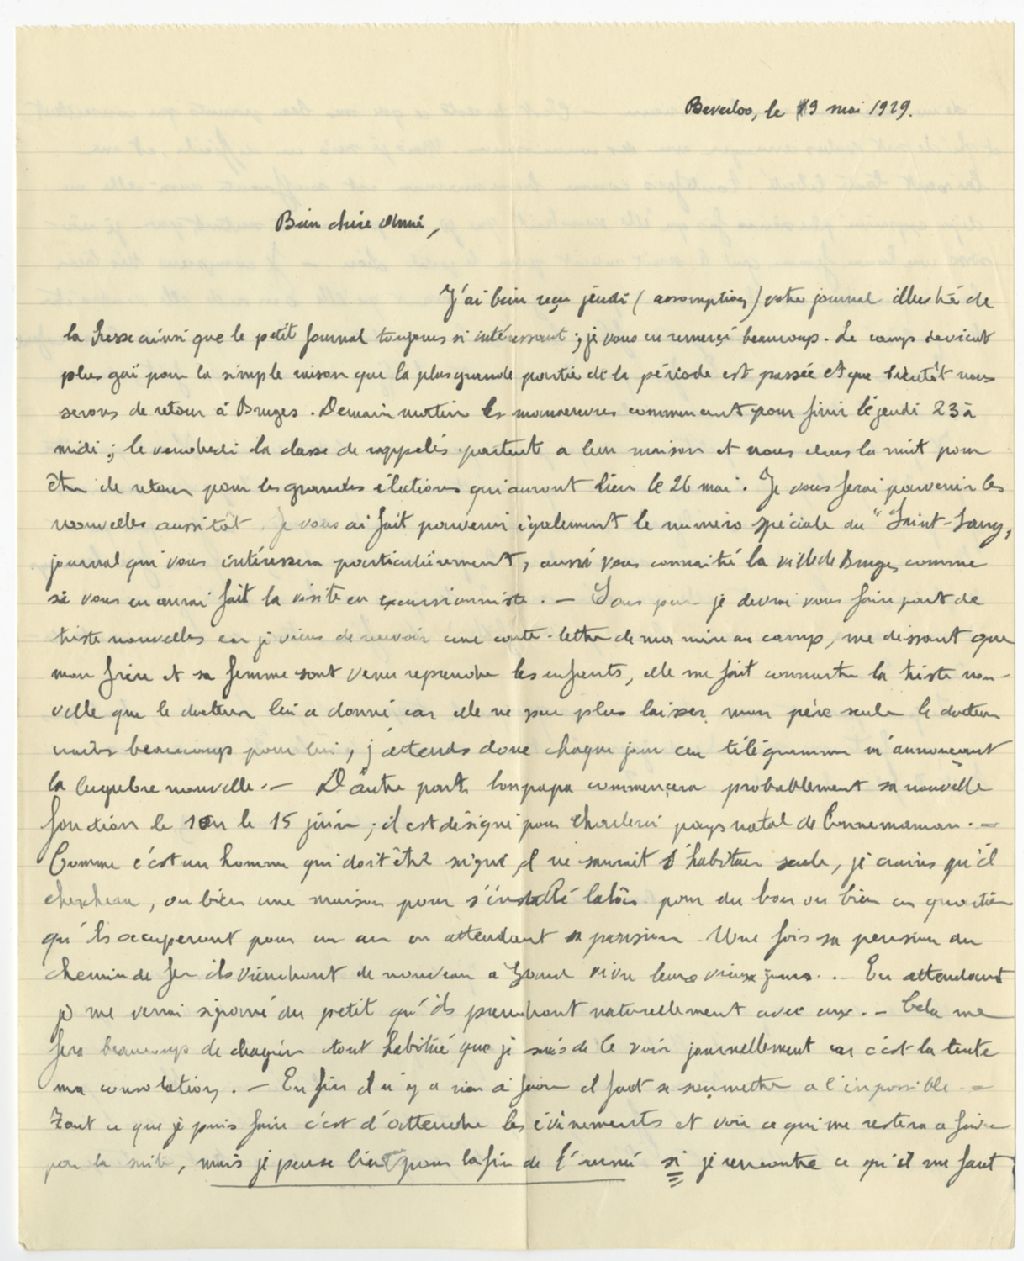 Beverloo, le 19 mai 1929.
Bien chère Aimée,
J'ai bien reçu jeudi (assomption) votre journal illustré de
la Presse ainsi que le petit Journal toujours si intéressant ; je vous en remercie beaucoup. Le camp devient
plus gai pour la simple raison que la plus grande partie de la période est passée et que bientôt nous
serons de retour à Bruges. Demain matin les manœuvres commencent pour finir le jeudi 23 à
midi ; le vendredi la classe de rappelés partent a leur maison et nous dans la nuit pour
être de retour pour les grandes élections qui auront lieu le 26 mai. Je vous ferai parvenir les
nouvelles aussitôt. Je vous ai fait parvenir également le numéro spéciale du "Saint-Sang,
journal qui vous intéressera particulièrement, aussi vous connaitré la ville de Bruges comme
si vous en aurai fait la visite en excursionniste. — je devrai vous faire part de
triste nouvelles car je viens de recevoir une carte-lettre de ma mère au camp, me dissant que
mon frère et sa femme sont venu reprendre les enfants, elle me fait connaitre la triste nou-
velle que le docteur lui a donné car elle ne peu plus laisser mon père seule le docteur
beaucoup pour lui ; j'attends donc chaque jour un télégramme m'annonçant
la lugubre nouvelle. — D'autre part, bonpapa commencera probablement sa nouvelle
fonction le 1er ou le 15 juin ; il est désigné pour Charleroi pays natal de Bonnemaman. —
Comme c'est un homme qui doit être soigné, il ne saurait s'habituer seule, je crains qu'il
chercheau, ou bien une maison pour s'installé labàs pour du bon ou bien un quartier
qu'ils occuperont pour un an en attendant sa pension. Une fois sa pension du
chemin de fer ils viendront de nouveau a Gand vivre leurs vieux jours. .. En attendant
je me verrai séparé du petit qu'ils prendront naturellement avec eux. — Cela me
fera beaucoup de chagrin tout habitué que je suis de le voir journellement car c'est la teute
ma consolation. — Enfin il n'y a rien a faire il faut se soumettre a l'impossible —
Tout ce que je puis faire c'est d'attendre les évènements et voir ce qui me restera a faire
par la suite, mais je pense bien pour la fin de l'année si je rencontre ce qu'il me faut